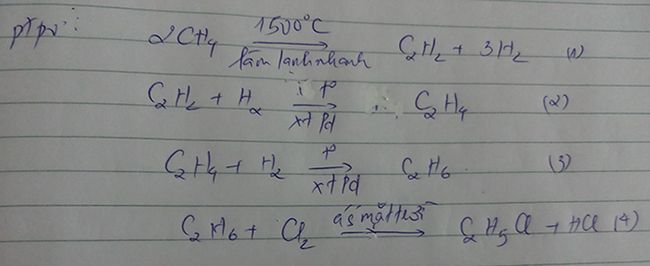 ptpư: 2CH4 1500°C làm lạnh nhanh → C2H2 + 3H2 (1)
C2H2 + H2 t° xt Pd → C2H4 (2)
C2H4 + H2 t° xt Pd → C2H6 (3)
C2H6 + Cl2 ás mặt trời → C2H5Cl + HCl (4)